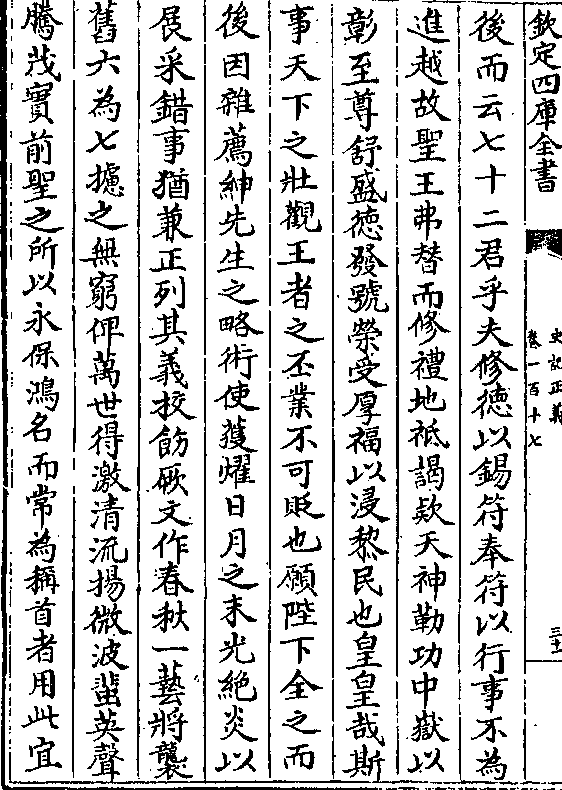 欽定四庫全書
史記正義
卷一百十七
三十
後而云七十二君乎夫修德以錫符奉符以行事不為
進越故聖王弗替而修禮地祗謁欵天神勒功中嶽以
彰至尊舒盛徳發號榮受厚福以浸黎民也皇皇哉斯
事天下之壯觀王者之丕業不可貶也願陛下全之而
後因雜薦紳先生之略術使獲燿日月之末光絶炎以
展采錯事猶兼正列其義校飭厥文作春秋一藝將襲
舊六為七攄之無窮俾萬世得激清流揚微波蜚英聲
騰茂實前聖之所以永保鴻名而常為稱首者用此宜